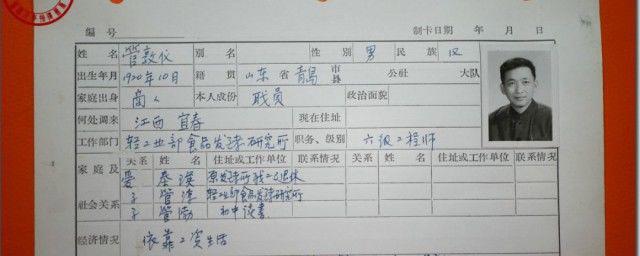 编号 制卡日期 年 月 日
姓名 管敦仪 别名 性别 男 民族 汉
出生年月 1920年10月 籍贯 山东省青岛市县 公社 大队
家庭出身 商人 本人成份 职员 政治面貌
何处调来 江西宜春 现在住址
工作部门 轻工业部食品发酵研究所 职务、级别 六级工程师
家庭及社会关系 关系 姓名 住址或工作单位 联系情况 关系 姓名 住址或工作单位 联系情况
爱 秦瑛 原发酵所 退休
子 管 轻工业部食品发酵研究所
子 管渤 初中读书
经济情况 依靠工资生活